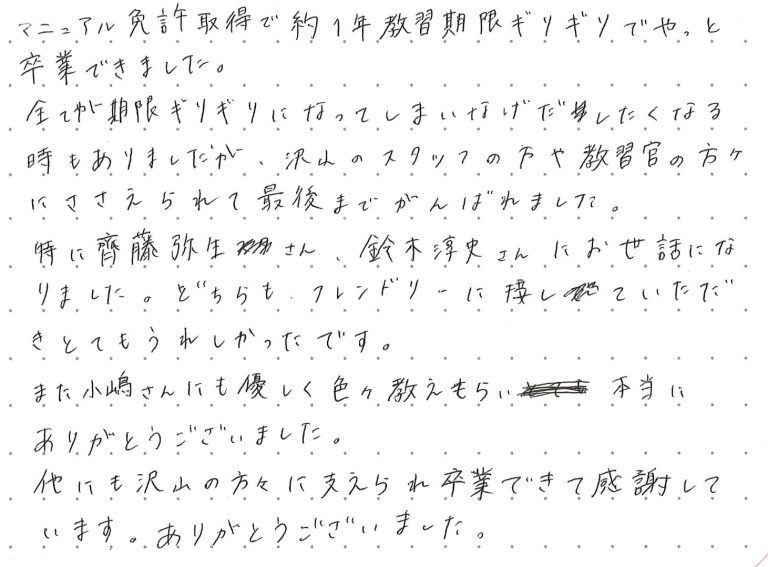 マニュアル免許取得で約1年教習期限ギリギリでやっと
卒業できました。
全てが期限ギリギリになってしまいなげだしたくなる
時もありましたが、沢山のスタッフの方や教習官の方々
にささえられて最後までがんばれました。
特に齊藤弥生さん、鈴木淳史さんにお世話にな
りました。どちらも、フレンドリーに接していただ
きとてもうれしかったです。
また小嶋さんにも優しく色々教えもらい 本当に
ありがとうございました。
他にも沢山の方々に支えられ卒業できて感謝して
います。ありがとうございました。